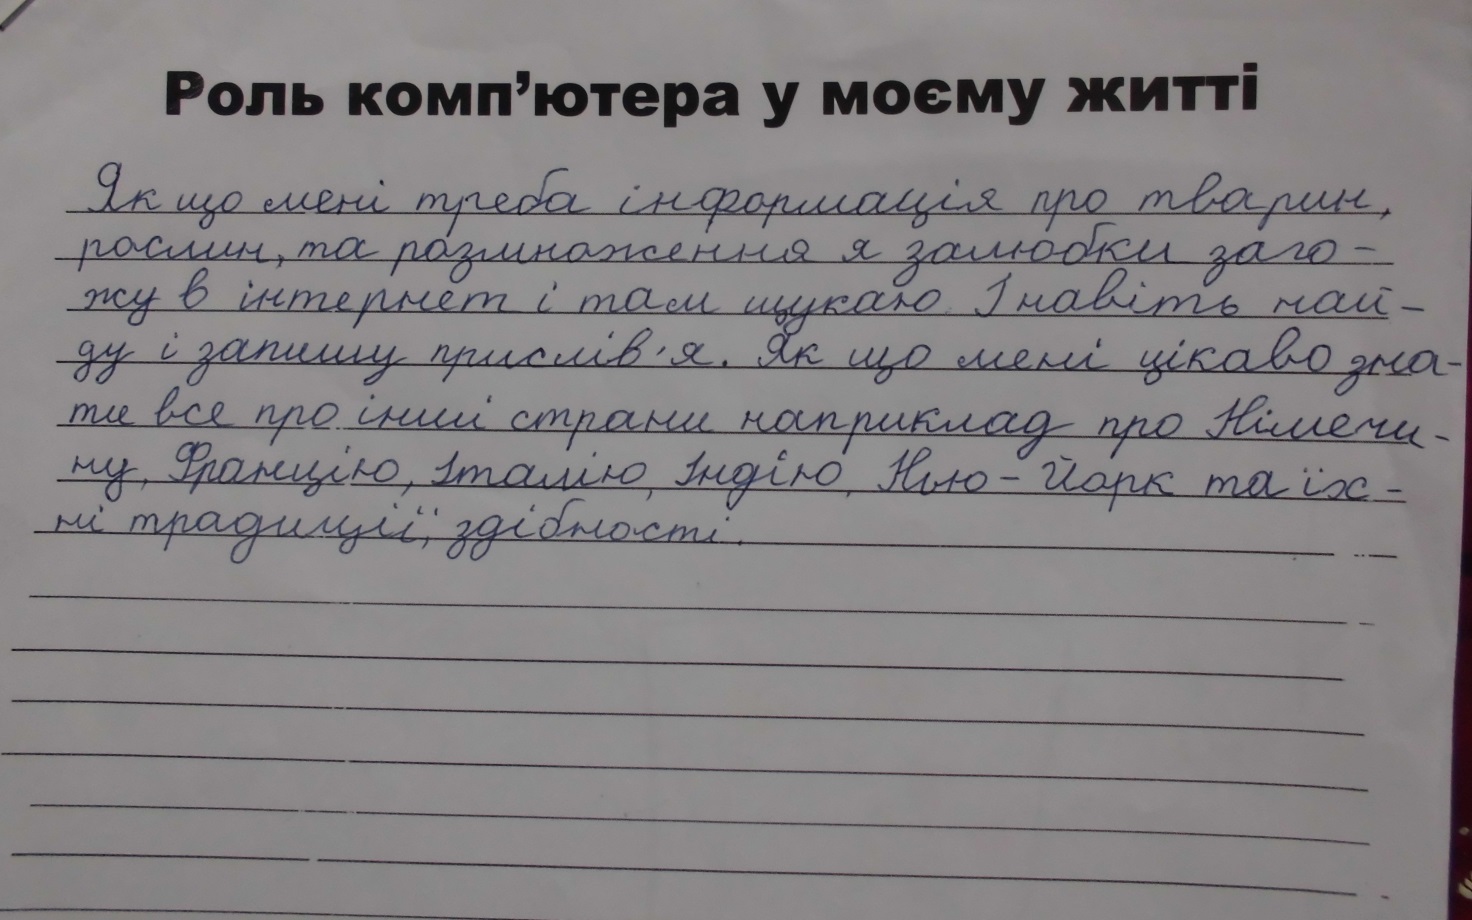 Роль комп’ютера у моєму житті
Як що мені треба інформація про тварин,
рослин, та розмноження я залюбки заго-
жу в інтернет і там щукаю. І навіть най-
ду і запишу прислів'я. Як що мені цікаво зна-
ти все про інші страни наприклад про Німечи-
ну, Францію, Італію, Індію, Нью-Йорк та їх-
ні традиції, здібності.